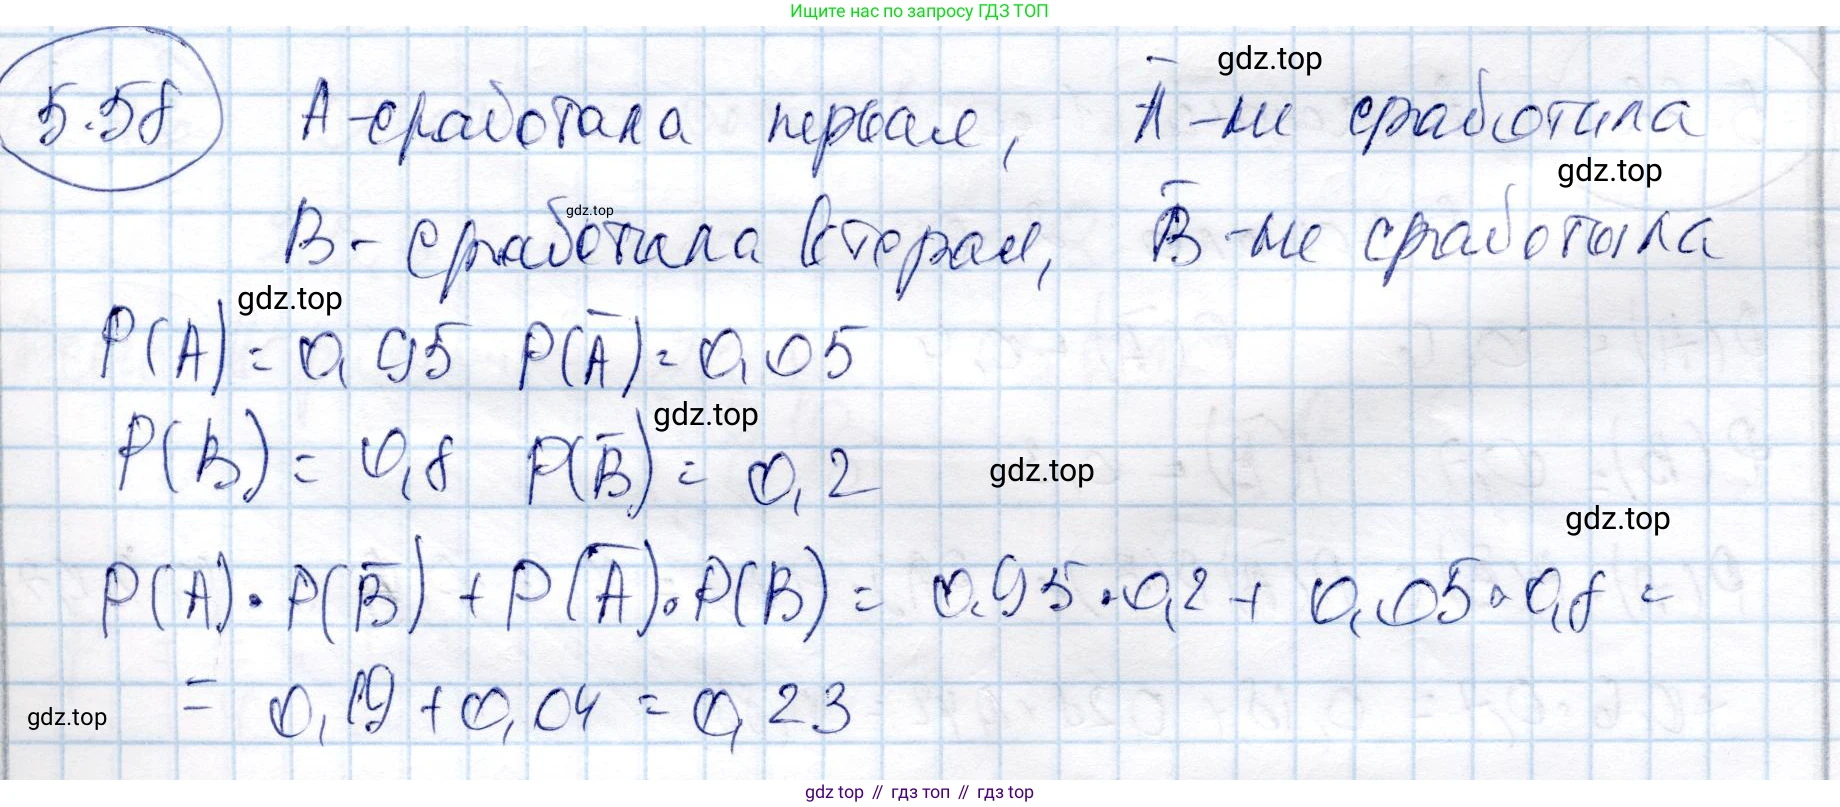 Ищите нас по запросу ГДЗ ТОП
gdz.top
5.58 А-сработала первая, Ā-не сработала
gdz.top
gdz.top
В- сработала вторая, B̄-не сработала
gdz.top
P(A)=0,95 P(Ā)=0,05
gdz.top
P(B)=0,8 P(B̄)=0,2
gdz.top
gdz.top
P(A)·P(B̄)+P(Ā)·P(B)=0,95·0,2+0,05·0,8=
=0,19+0,04=0,23
gdz.top
gdz top // гдз топ // гдз top